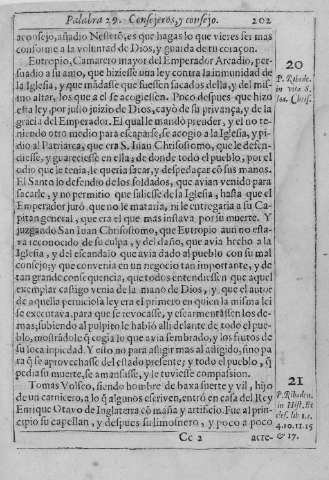 Palabra 29. Consejeros, y consejo. 202
aconsejo, añadio Nestorio, es que hagas lo que vieres ser mas
conforme a la voluntad de Dios, y guarda de tu coraçon.
Eutropio, Camarero mayor del Emperador Arcadio, per-
suadio a su amo, que hiziesse una ley contra la inmunidad de
la Iglesia, y que mãdasse que fuessen sacados della, y del mis-
mo altar, los que a el se acogiessen. Poco despues que hizo
esta ley, por justo juizio de Dios, cayò de su privança, y de la
gracia del Emperador. El qual le mandò prender, y el no te-
niendo otro medio para escaparse, se acogio a la Iglesia, y pi-
dio al Patriarca, que era S. Iuan Chrisostomo, que le defen-
diesse, y guareciesse en ella; de donde todo el pueblo, por el
odio que le tenia, le queria sacar, y despedaçar cõ sus manos.
El Santo lo defendio de los soldados, que avian venido para
sacarle, y no permitio que saliesse de la Iglesia, hasta que el
Emperador jurò, que no le mataria, ni le entregaria a su Ca-
pitan general, que era el que mas instava por su muerte. Y
juzgando San Iuan Chrisostomo, que Eutropio aun no esta-
va reconocido de su culpa, y del daño, que avia hecho a la
Iglesia, y del escandalo que avia dado al pueblo con su mal
consejo; y que convenia en un negocio tan importante, y de
tan grande consequencia, que todos entendiessen que aquel
exemplar castigo venia de la mano de Dios, y que el autor
de aquella perniciosa ley era el primero en quien la misma lei
se executava, para que se revocasse, y escarmentassen los de-
mas; subiendo al pulpito le habló alli delante de todo el pue-
blo, mostrãdole q̃ cogia lo que avia sembrado, y los frutos de
su loca impiedad. Y esto no para afligir mas al afligido, sino pa
ra q̃ se aprovechasse del estado presente; y todo el pueblo, q̃
pedia su muerte, se amansasse, y le tuviesse compassion.
Tomas Volseo, siendo hombre de baxa suerte y vil, hijo
de un carnicero, a lo q̃ algunos escriven, entrò en casa del Rey
Enrique Otavo de Inglaterra cõ maña y artificio. Fue al prin-
cipio su capellan, y despues su limosnero, y poco a poco
Cc 2 acre-
20
P. Ribade.
in vita S.
Ioa. Chris.
21
P. Ribaden.
in Hist. Ec
cles. lib 1. c.
4.10.11.15
& 17.